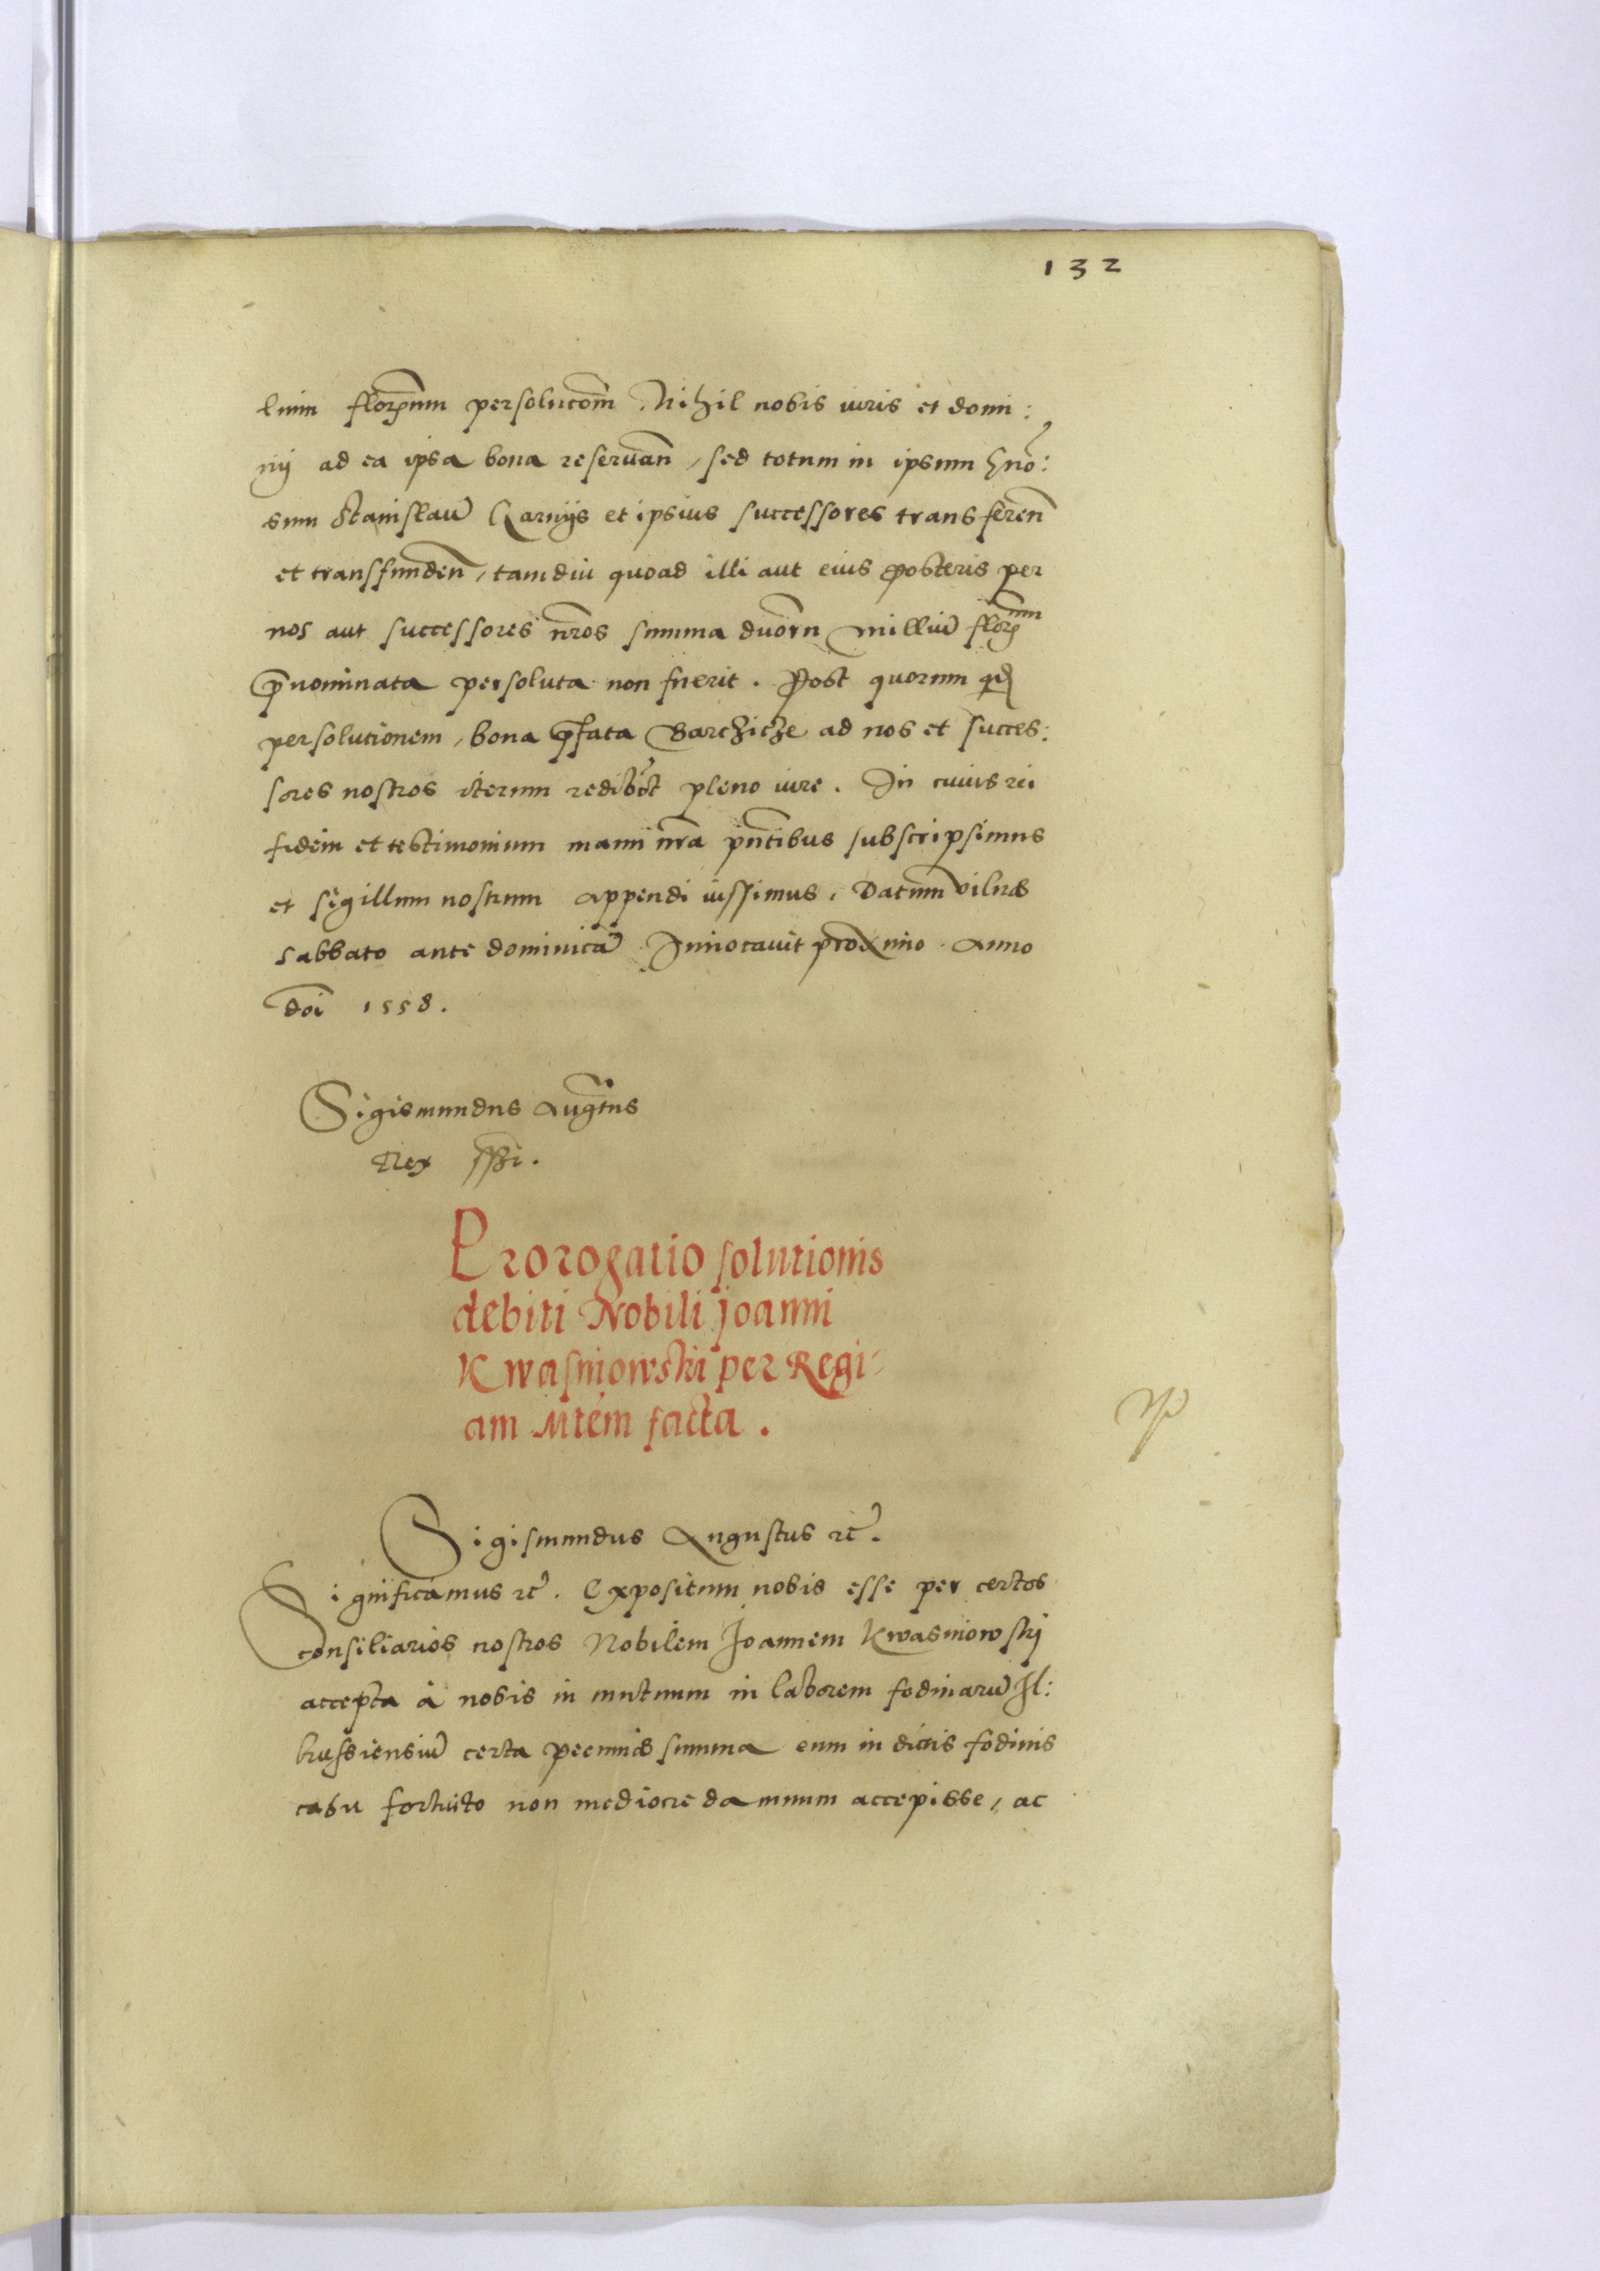 132
lium florenum persolucōm. Nihil nobis iuris et domi:
nij ad ea ipsa bona reservan̄, sed totum in ipsum Gn̄o:
sum Stanislaū Karnijs et ipsius successores transferen̄
et transfunden̄, tamdiu quoad illi aut eius posteris per
nos aut successores nr̄os summa duorn̄ milliū florenum
p̄nominata persoluta non fuerit. Post quorum quid
persolutionem, bona p̄fata Barchiche ad nos et succes:
sores nostros iterum redibūt pleno iure. In cuius rei
fidem et testimonium manu nr̄a pn̄tibus subscripsimus
et sigillum nostrum appendi iussimus. Datum Vilnae
sabbato ante dominicā Invocavit proximo. Anno
Dōi 1558.
Sigismundus Augtus
Rex sst.
Prorogatio solutionis
debiti Nobili Joanni
Kwasniowski per Regi-
am Mtem facta.
Sigismundus Augustus rc̄.
Significamus rc̄. Expositum nobis esse per certos
consiliarios nostros Nobilem Joannem Kwasniowskj
accepta à nobis in mutuum in laborem fodinarū Jl:
kussiensiū certa pecuniae summa eum in dictis fodinis
casu fortuito non mediocre damnum accepisse, ac